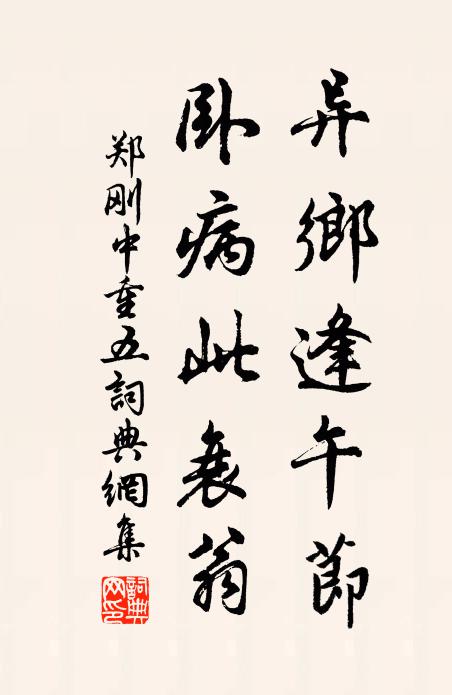 异鄉逢午節
卧病此衰翁
郑刚中重五詞典網集
詞典网印